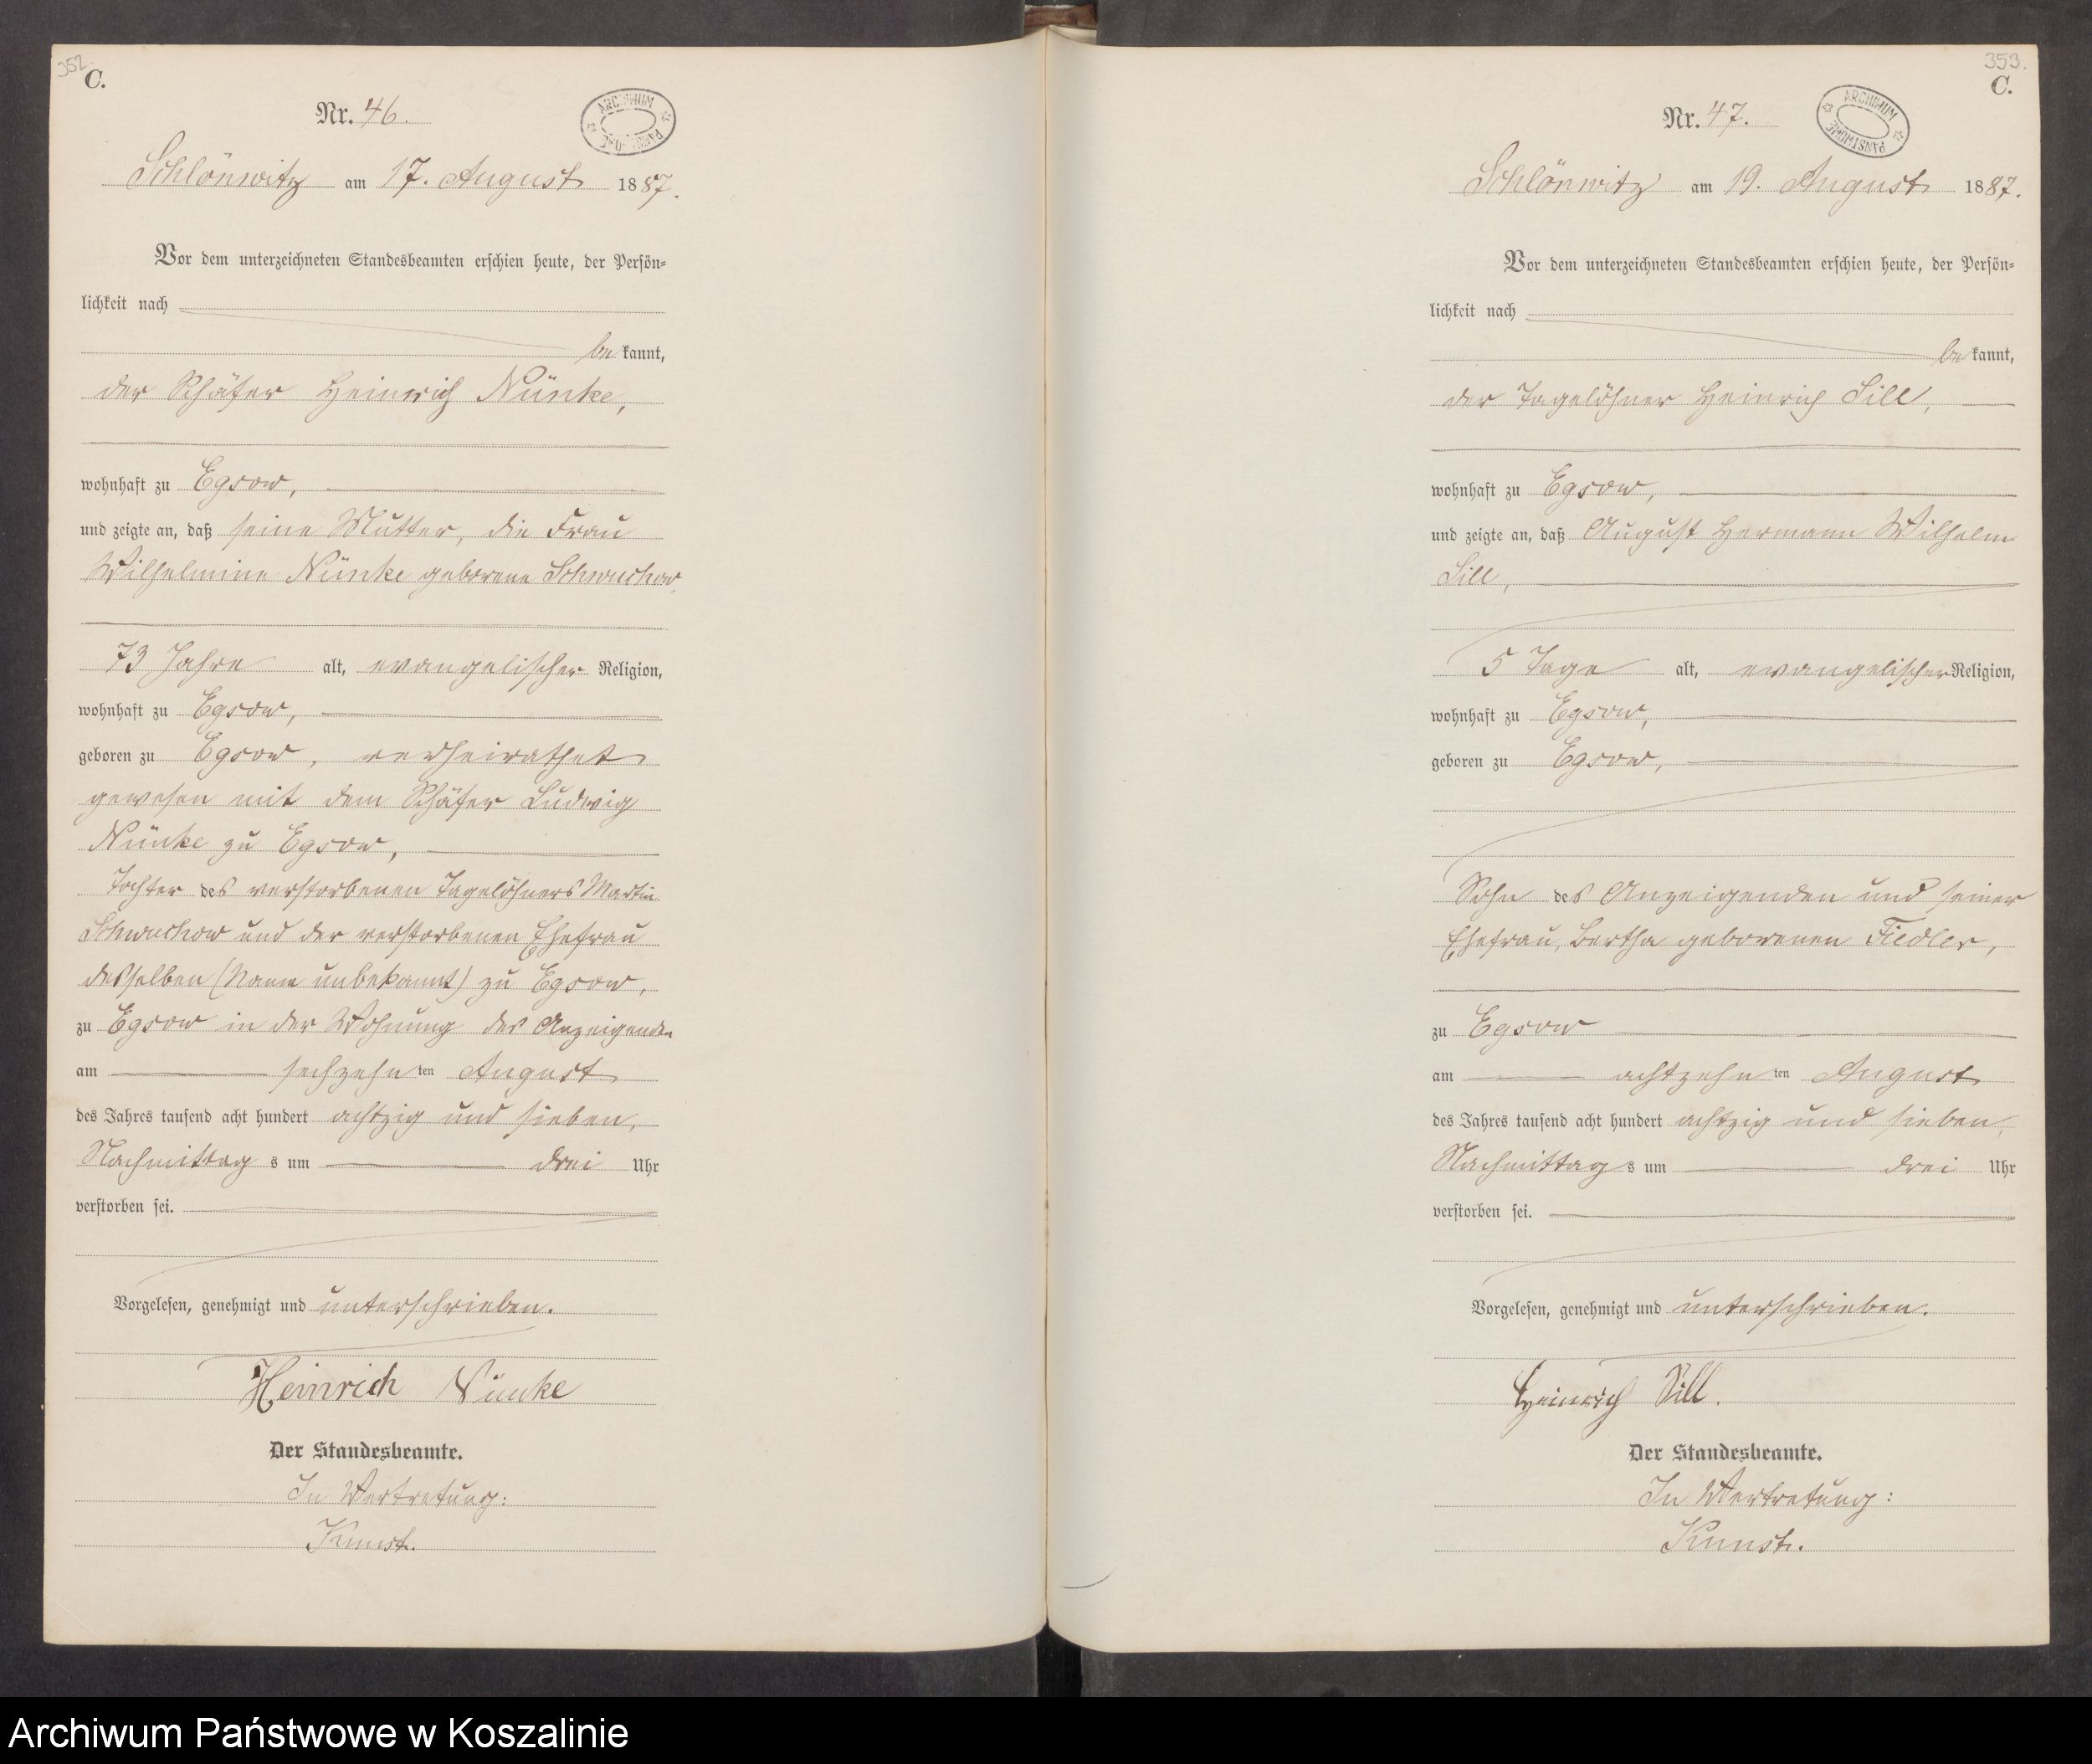 352.
C.
Nr. 46.
ARCHIWUM
Schlönwitz am 17. August 1887.
Vor dem unterzeichneten Standesbeamten erschien heute, der Persön-
lichkeit nach
be kannt,
der Schäfer Heinrich Nünke,
wohnhaft zu Egsow,
und zeigte an, daß seine Mutter, die Frau
Wilhelmine Nünke geborene Schwuchow,
73 Jahre alt, evangelischer Religion,
wohnhaft zu Egsow,
geboren zu Egsow, verheirathet
gewesen mit dem Schäfer Ludwig
Nünke zu Egsow,
Tochter des verstorbenen Tagelöhners Martin
Schwuchow und der verstorbenen Ehefrau
desselben (Name unbekannt) zu Egsow,
zu Egsow in der Wohnung des Anzeigenden
am sechzehnten August
des Jahres tausend acht hundert achtzig und sieben,
Nachmittags um drei Uhr
verstorben sei.
Vorgelesen, genehmigt und unterschrieben.
Heinrich Nünke
Der Standesbeamte.
In Vertretung:
Kunst.
353.
C.
Nr. 47.
ARCHIWUM
PAŃSTWOWE
Schlönwitz am 19. August 1887.
Vor dem unterzeichneten Standesbeamten erschien heute, der Persön-
lichkeit nach
be kannt,
der Tagelöhner Heinrich Sill,
wohnhaft zu Egsow,
und zeigte an, daß August Hermann Wilhelm
Sill,
5 Tage alt, evangelischer Religion,
wohnhaft zu Egsow,
geboren zu Egsow,
Sohn des Anzeigenden und seiner
Ehefrau, Bertha geborenen Fiedler,
zu Egsow
am achtzehnten August
des Jahres tausend acht hundert achtzig und sieben,
Nachmittags um drei Uhr
verstorben sei.
Vorgelesen, genehmigt und unterschrieben.
Heinrich Sill.
Der Standesbeamte.
In Vertretung:
Kunst.
Archiwum Państwowe w Koszalinie